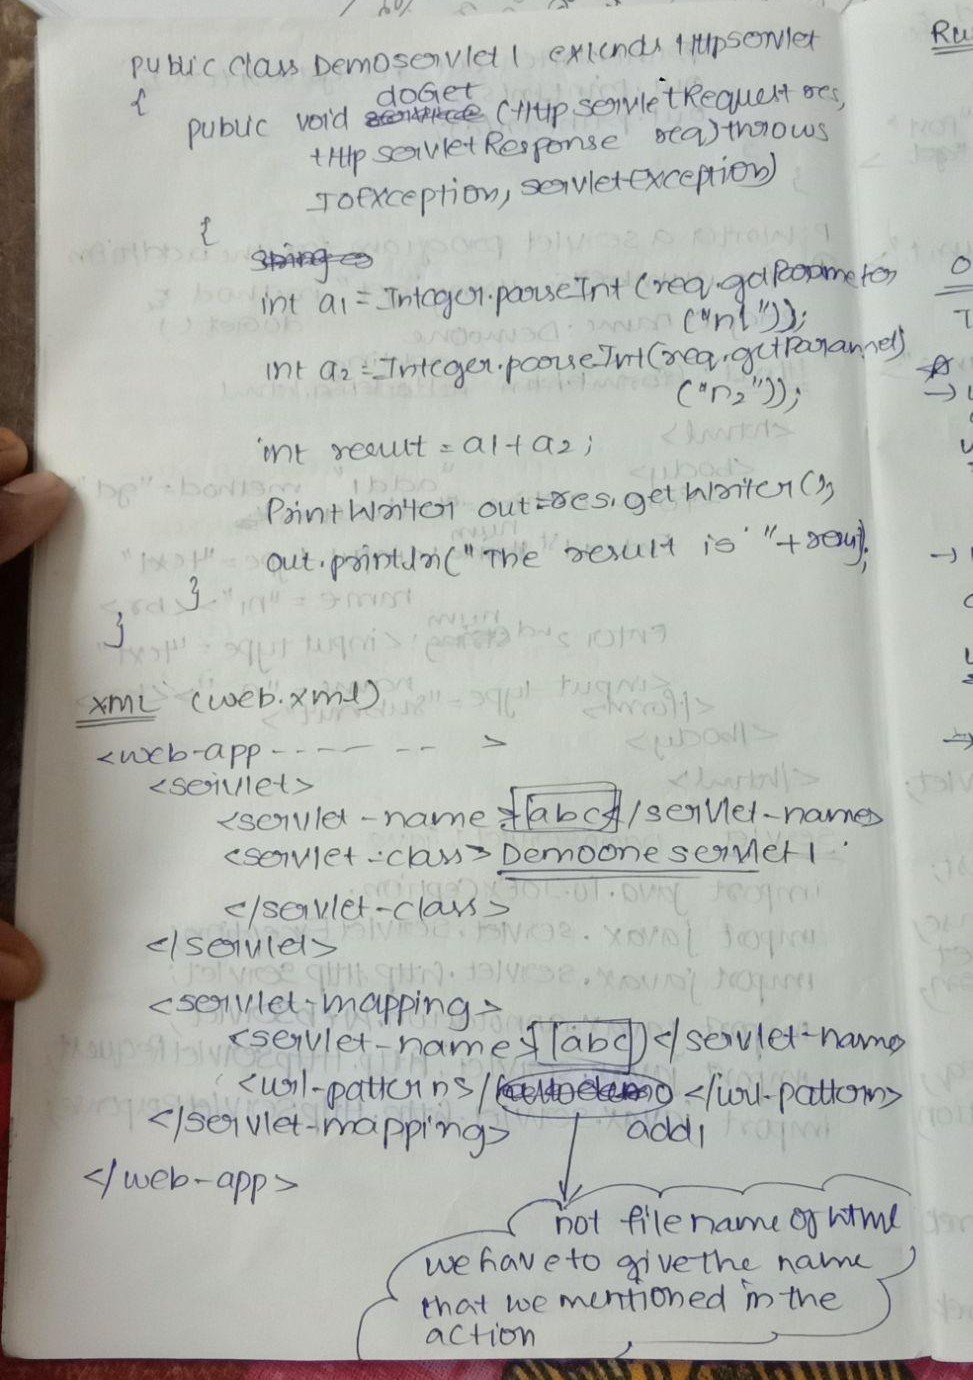 public class Demoservlet1 extends Httpservlet
{
doGet
public void (HttpservletRequest res,
HttpservletResponse req) throws
IoException, servletexception)
{
int a1 = Integer.parseInt (req.getParameter
("n1"));
int a2 = Integer.parseInt(req.getParamet)
("n2"));
int result = a1+a2;
PrintWriter out=res.getWriter();
out.println("The result is "+resu);
}
}
XML (web.xml)
<web-app - - - - - - - >
<servlet>
<servlet-name>[abc]</servlet-name>
<servlet-class> Demoone servlet1
</servlet-class>
</servlet>
<servlet-mapping>
<servlet-name>[abc]</servlet-name>
<url-patterns/ </url-pattern>
</servlet-mapping> add1
</web-app>
not file name of html
we have to give the name
that we mentioned in the
action
Ru